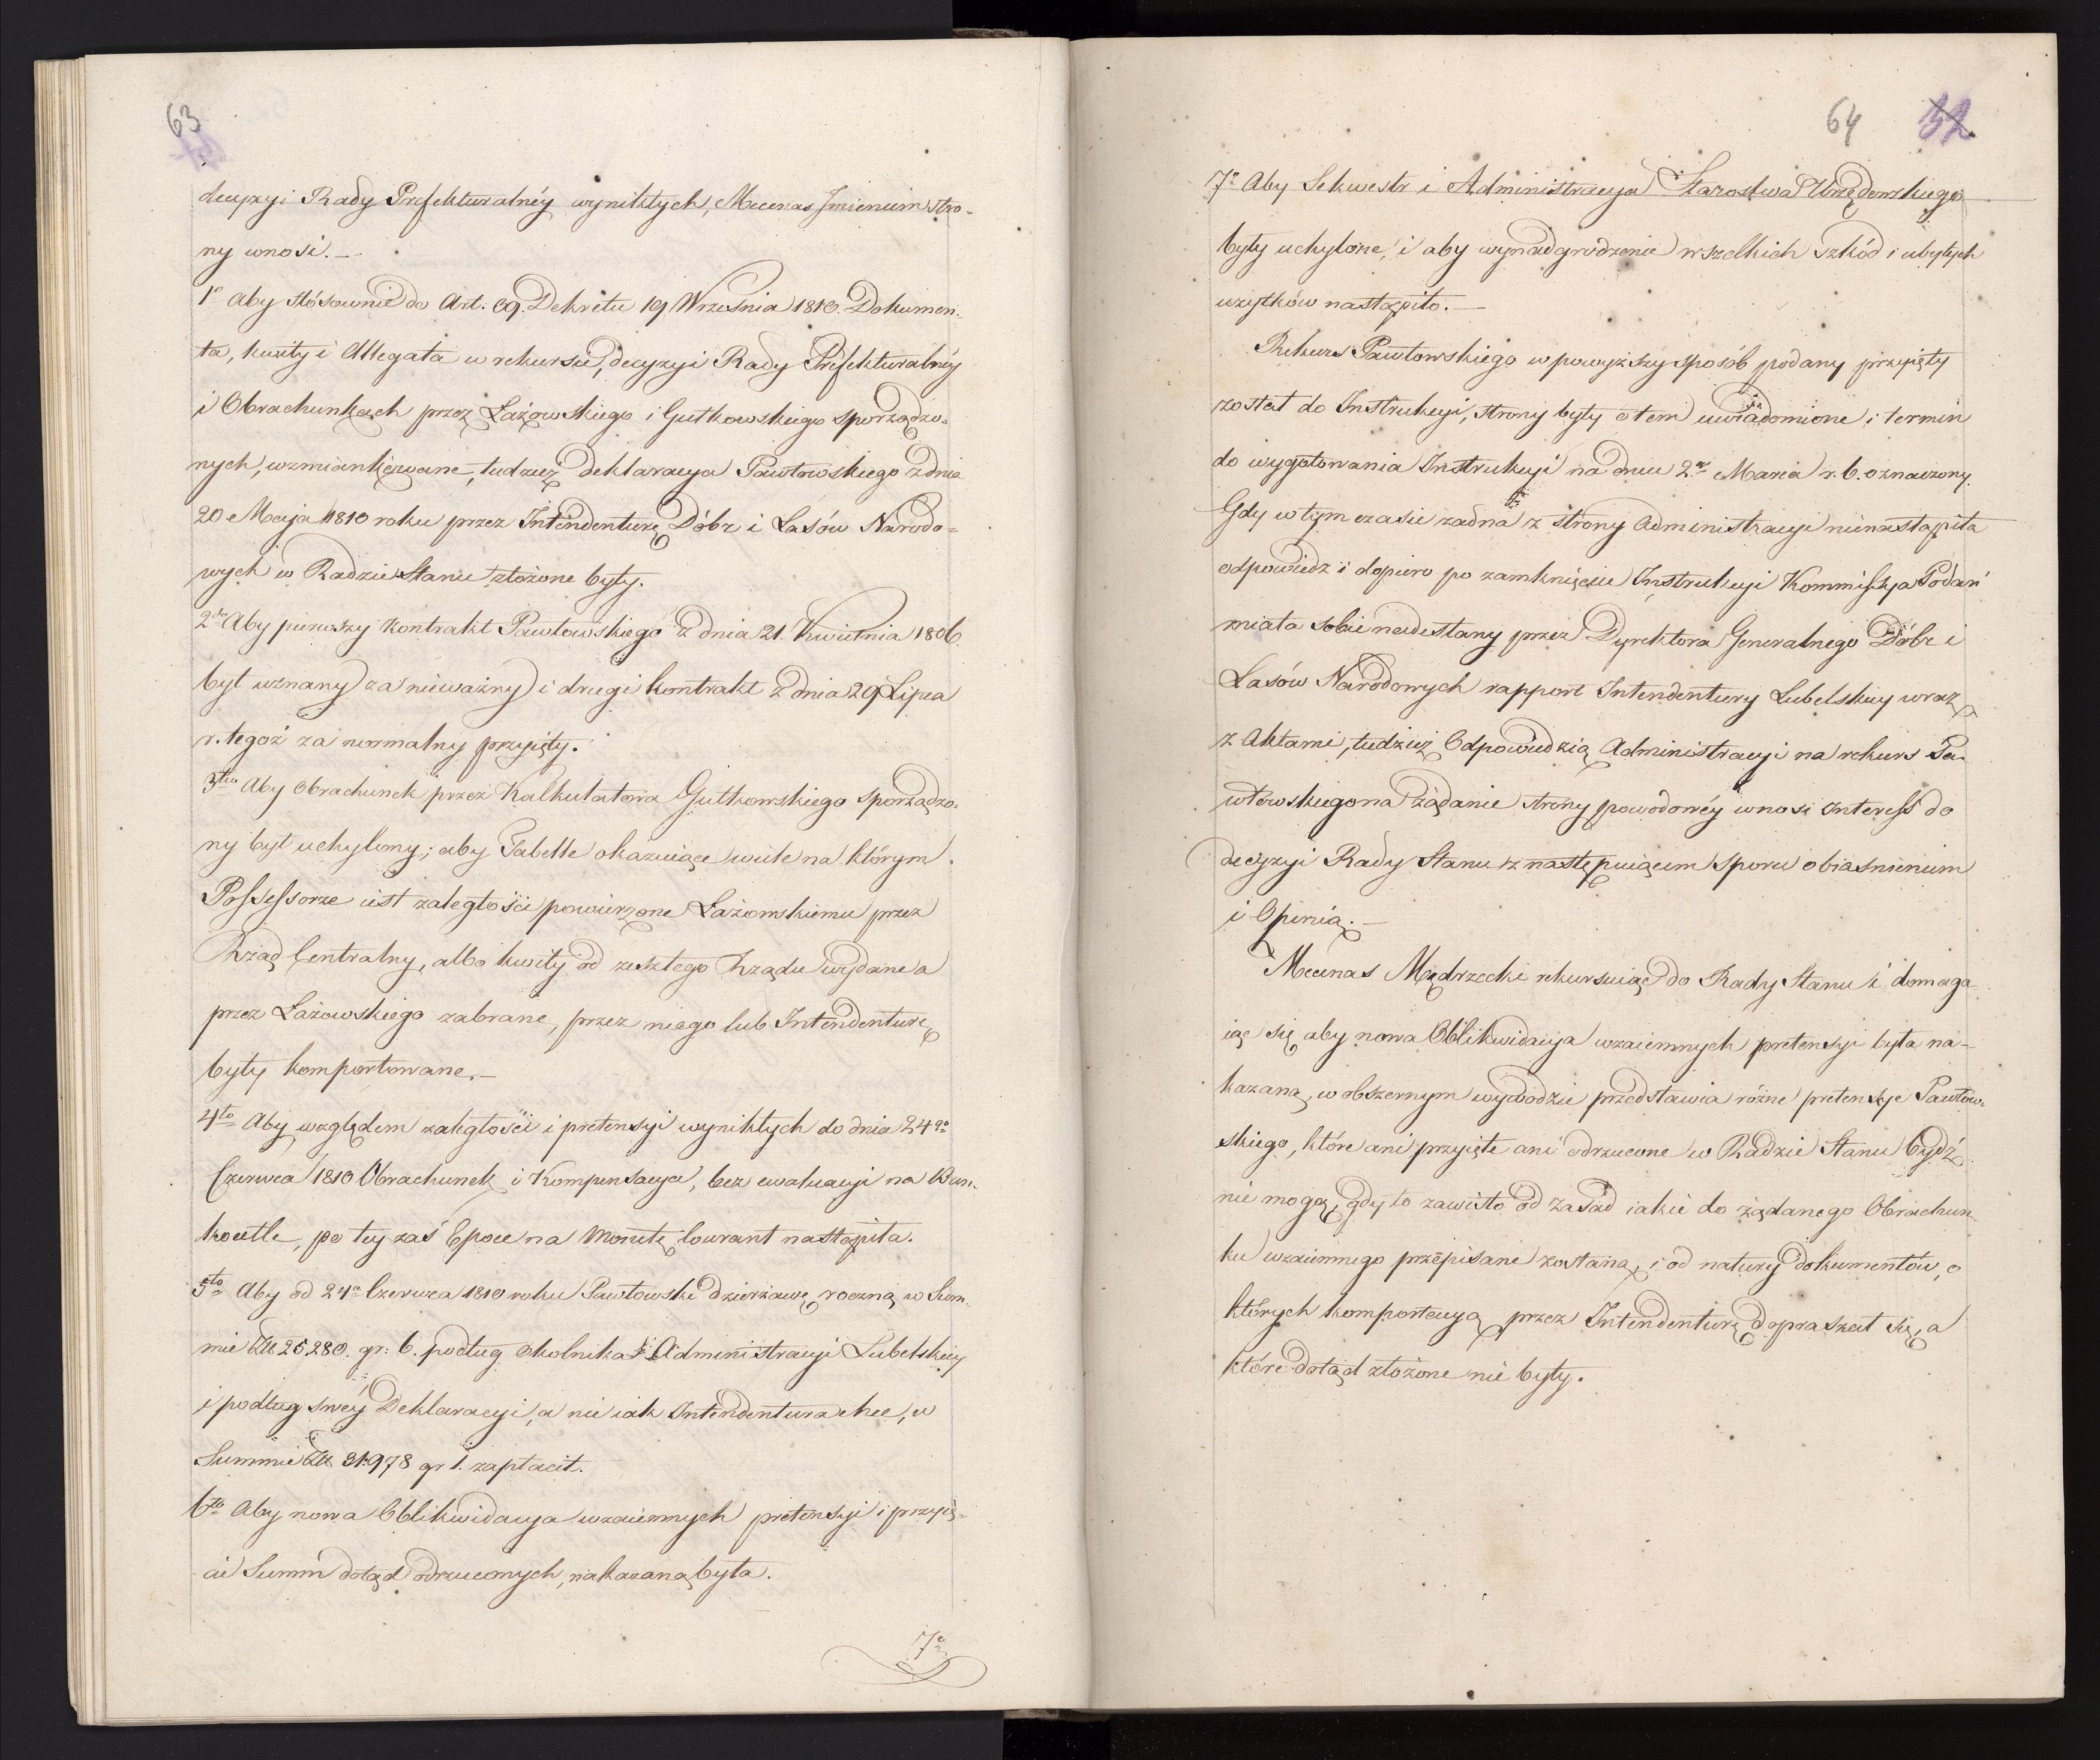 63
decyzyi Rady Prefekturalnéy wynikłych, Mecenas Imieniem stro=
ny wnosi.—
1o aby stósownie do Art: 69. Dekretu 19 Września 1810. Dokumen=
ta, kwity i Allegata w rekursie, decyzyi Rady Prefekturalnéy
i Obrachunkach przez Łażowskiego i Gutkowskiego sporządzo=
nych, wzmiankowane, tudzież deklaracya Pawłowskiego z dnia
20 Maja 1810 roku przez Intendenturę Dóbr i Lasów Narodo=
wych w Radzie Stanu złożone były.
2do Aby pierwszy kontrakt Pawłowskiego z dnia 21. Kwietnia 1806.
był uznany za nieważny i drugi kontrakt z dnia 29 Lipca
r. tegoż za normalny przyięty.
3tio Aby obrachunek przez Kalkulatora Gutkowskiego sporządzo=
ny był uchylony; aby Tabelle okazuiące wiele na którym
Possessorze iest zaległości powierzone Łażowskiemu przez
Rząd Centralny, albo kwity od zeszłego Rządu wydane a
przez Łażowskiego zabrane, przez niego lub Intendenturę
były komportowane.—
4to Aby względem zaległości i pretensyi wynikłych do dnia 24go
Czerwca 1810 Obrachunek i Kompensacya, bez ewaluacyi na Ban=
kocetle, po tey zaś Epoce na Monetę Courant nastąpiła.
5to Aby od 24o Czerwca 1810 roku Pawłowski dzierżawę roczną w Sum=
mie Złł 25,280. gr: 6. podług okolnika Administracyi Lubelskiey
i podług swéy Deklaracyi, a nie iak Intendentura chce, w
Summie Złł 31978 gr 1. zapłacił.
6to Aby nowa Oblikwidacya wzaiemnych pretensyi i przyię=
cie Summ dotąd odrzuconych, nakazaną była.
7o
64 32
7o Aby Sekwestr i Administracya Starostwa Urzędowskiego
były uchylone, i aby wynadgrodzenie wszelkich szkód i ubyłych
użytków nastąpiło.—
Rekurs Pawłowskiego w powyższy sposób podany przyięty
został do Instrukcyi, strony były o tem uwiadomione i termin
do wygotowania Instrukcyi na dniu 2go Marca r. b. oznaczony.
Gdy w tym czasie żadna z strony Administracyi nienastąpiła
odpowiedź i dopiero po zamknięciu Instrukcyi Kommissya Podań
miała sobie nadesłany przez Dyrektora Generalnego Dóbr i
Lasów Narodowych rapport Intendentury Lubelskiey wraz
z Aktami, tudzież Odpowiedzią Administracyi na rekurs Pa=
włowskiego na żądanie strony powodowéy wnosi Interess do
decyzyi Rady Stanu z następuiącem sporu obiaśnieniem
i Opinią.—
Mecenas Mędrzecki rekursuiąc do Rady Stanu i domaga=
iąc się aby nowa Oblikwidacya wzaiemnych pretensyi była na=
kazaną, w obszernym wywodzie przedstawia różne pretensye Pawłow=
skiego, które ani przyięte ani odrzucone w Radzie Stanu bydź
nie mogą, gdy to zawisło od zasad iakie do żądanego Obrachun=
ku wzaiemnego przepisane zostaną, i od natury dokumentów, o
których komportacyą przez Intendenturę dopraszał się, a
które dotąd złożone nie były.